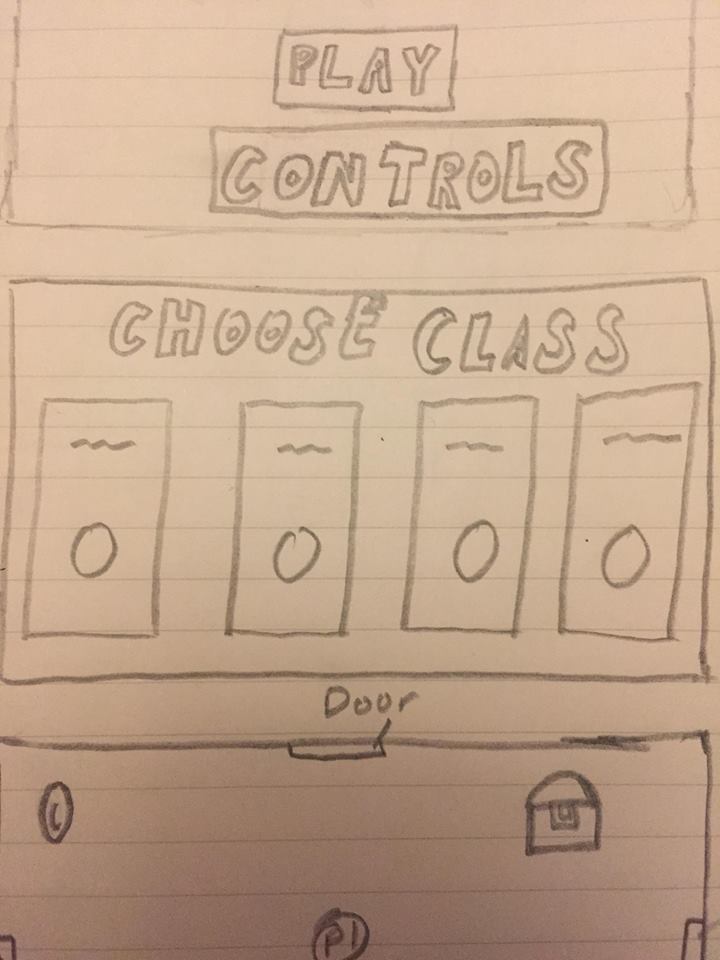 PLAY
CONTROLS
CHOOSE CLASS
Door
C
P1